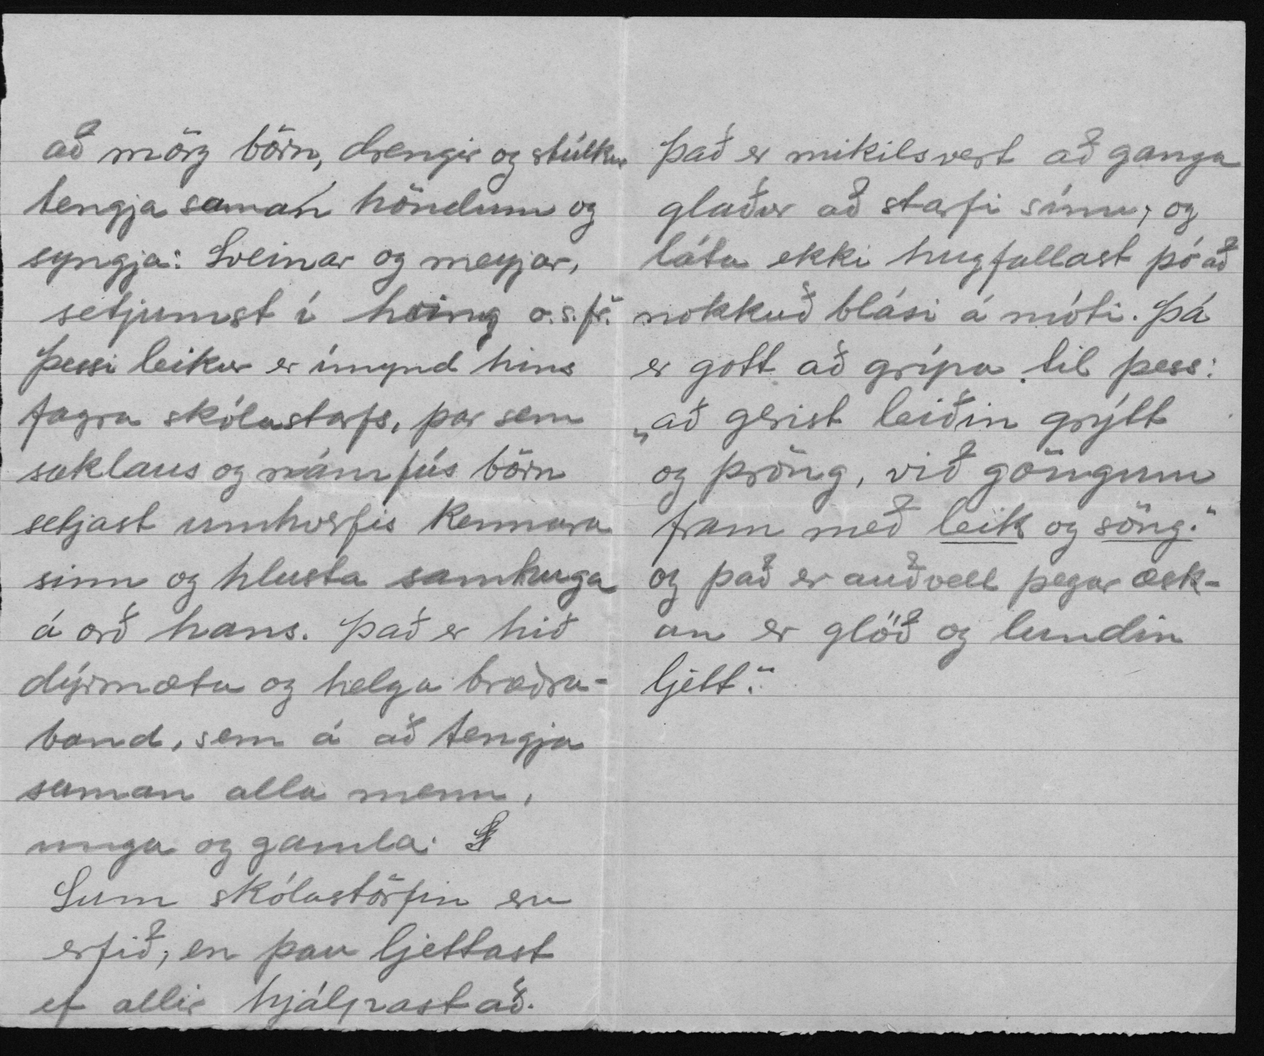 að mörg börn, drengir og stúlkur
tengja saman höndum og
syngja: Sveinar og meyjar,
setjumst í hring o.s.fr.
Þessi leikur er ímynd hins
fagra skólastarfs, þar sem
saklaus og námfús börn
setjast umhverfis kennara
sinn og hlusta samhuga
á orð hans. Það er hið
dýrmæta og helga bræðra-
band, sem á að tengja
saman alla menn,
unga og gamla.
Sum skólastörfin eru
erfið; en þau ljettast
ef allir hjálpast að.
Það er mikilsvert að ganga
glaður að starfi sínu; og
láta ekki hugfallast þó að
nokkuð blási á móti. Þá
er gott að grípa til þess:
„að gerist leiðin grýtt
og þröng, við göngum
fram með leik og söng."
og það er auðvelt þegar æsk-
an er glöð og lundin
ljett."